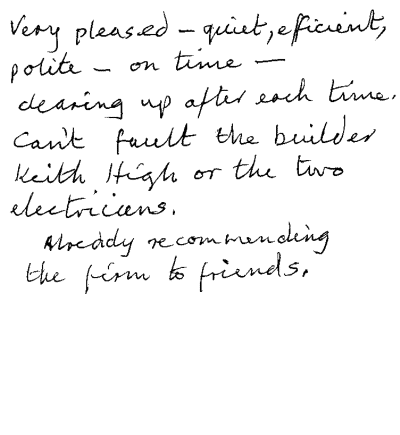 Very pleased – quiet, efficient,
polite – on time –
clearing up after each time.
Can't fault the builder
Keith High or the two
electricians.
Already recommending
the firm to friends.